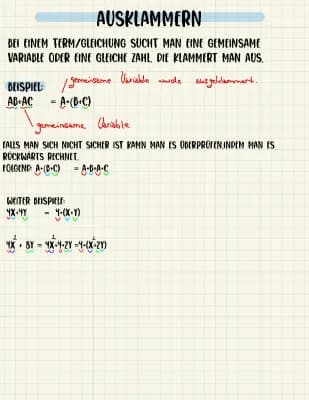 AUSKLAMMERN
BEI EINEM TERM/GLEICHUNG SUCHT MAN EINE GEMEINSAME
VARIABLE ODER EINE GLEICHE ZAHL. DIE KLAMMERT MAN AUS.
gemeinsame Variable wurde ausgeklammert.
BEISPIEL:
AB+AC = A•(B+C)
gemeinsame Variable
FALLS MAN SICH NICHT SICHER IST KANN MAN ES ÜBERPRÜFEN,INDEM MAN ES
RÜCKWÄRTS RECHNET.
FOLGEND: A•(B+C) = A•B+A•C
WEITER BEISPIELE:
4X+4Y = 4•(X+Y)
4X² + 8Y = 4X²+4•2Y =4•(X²+2Y)